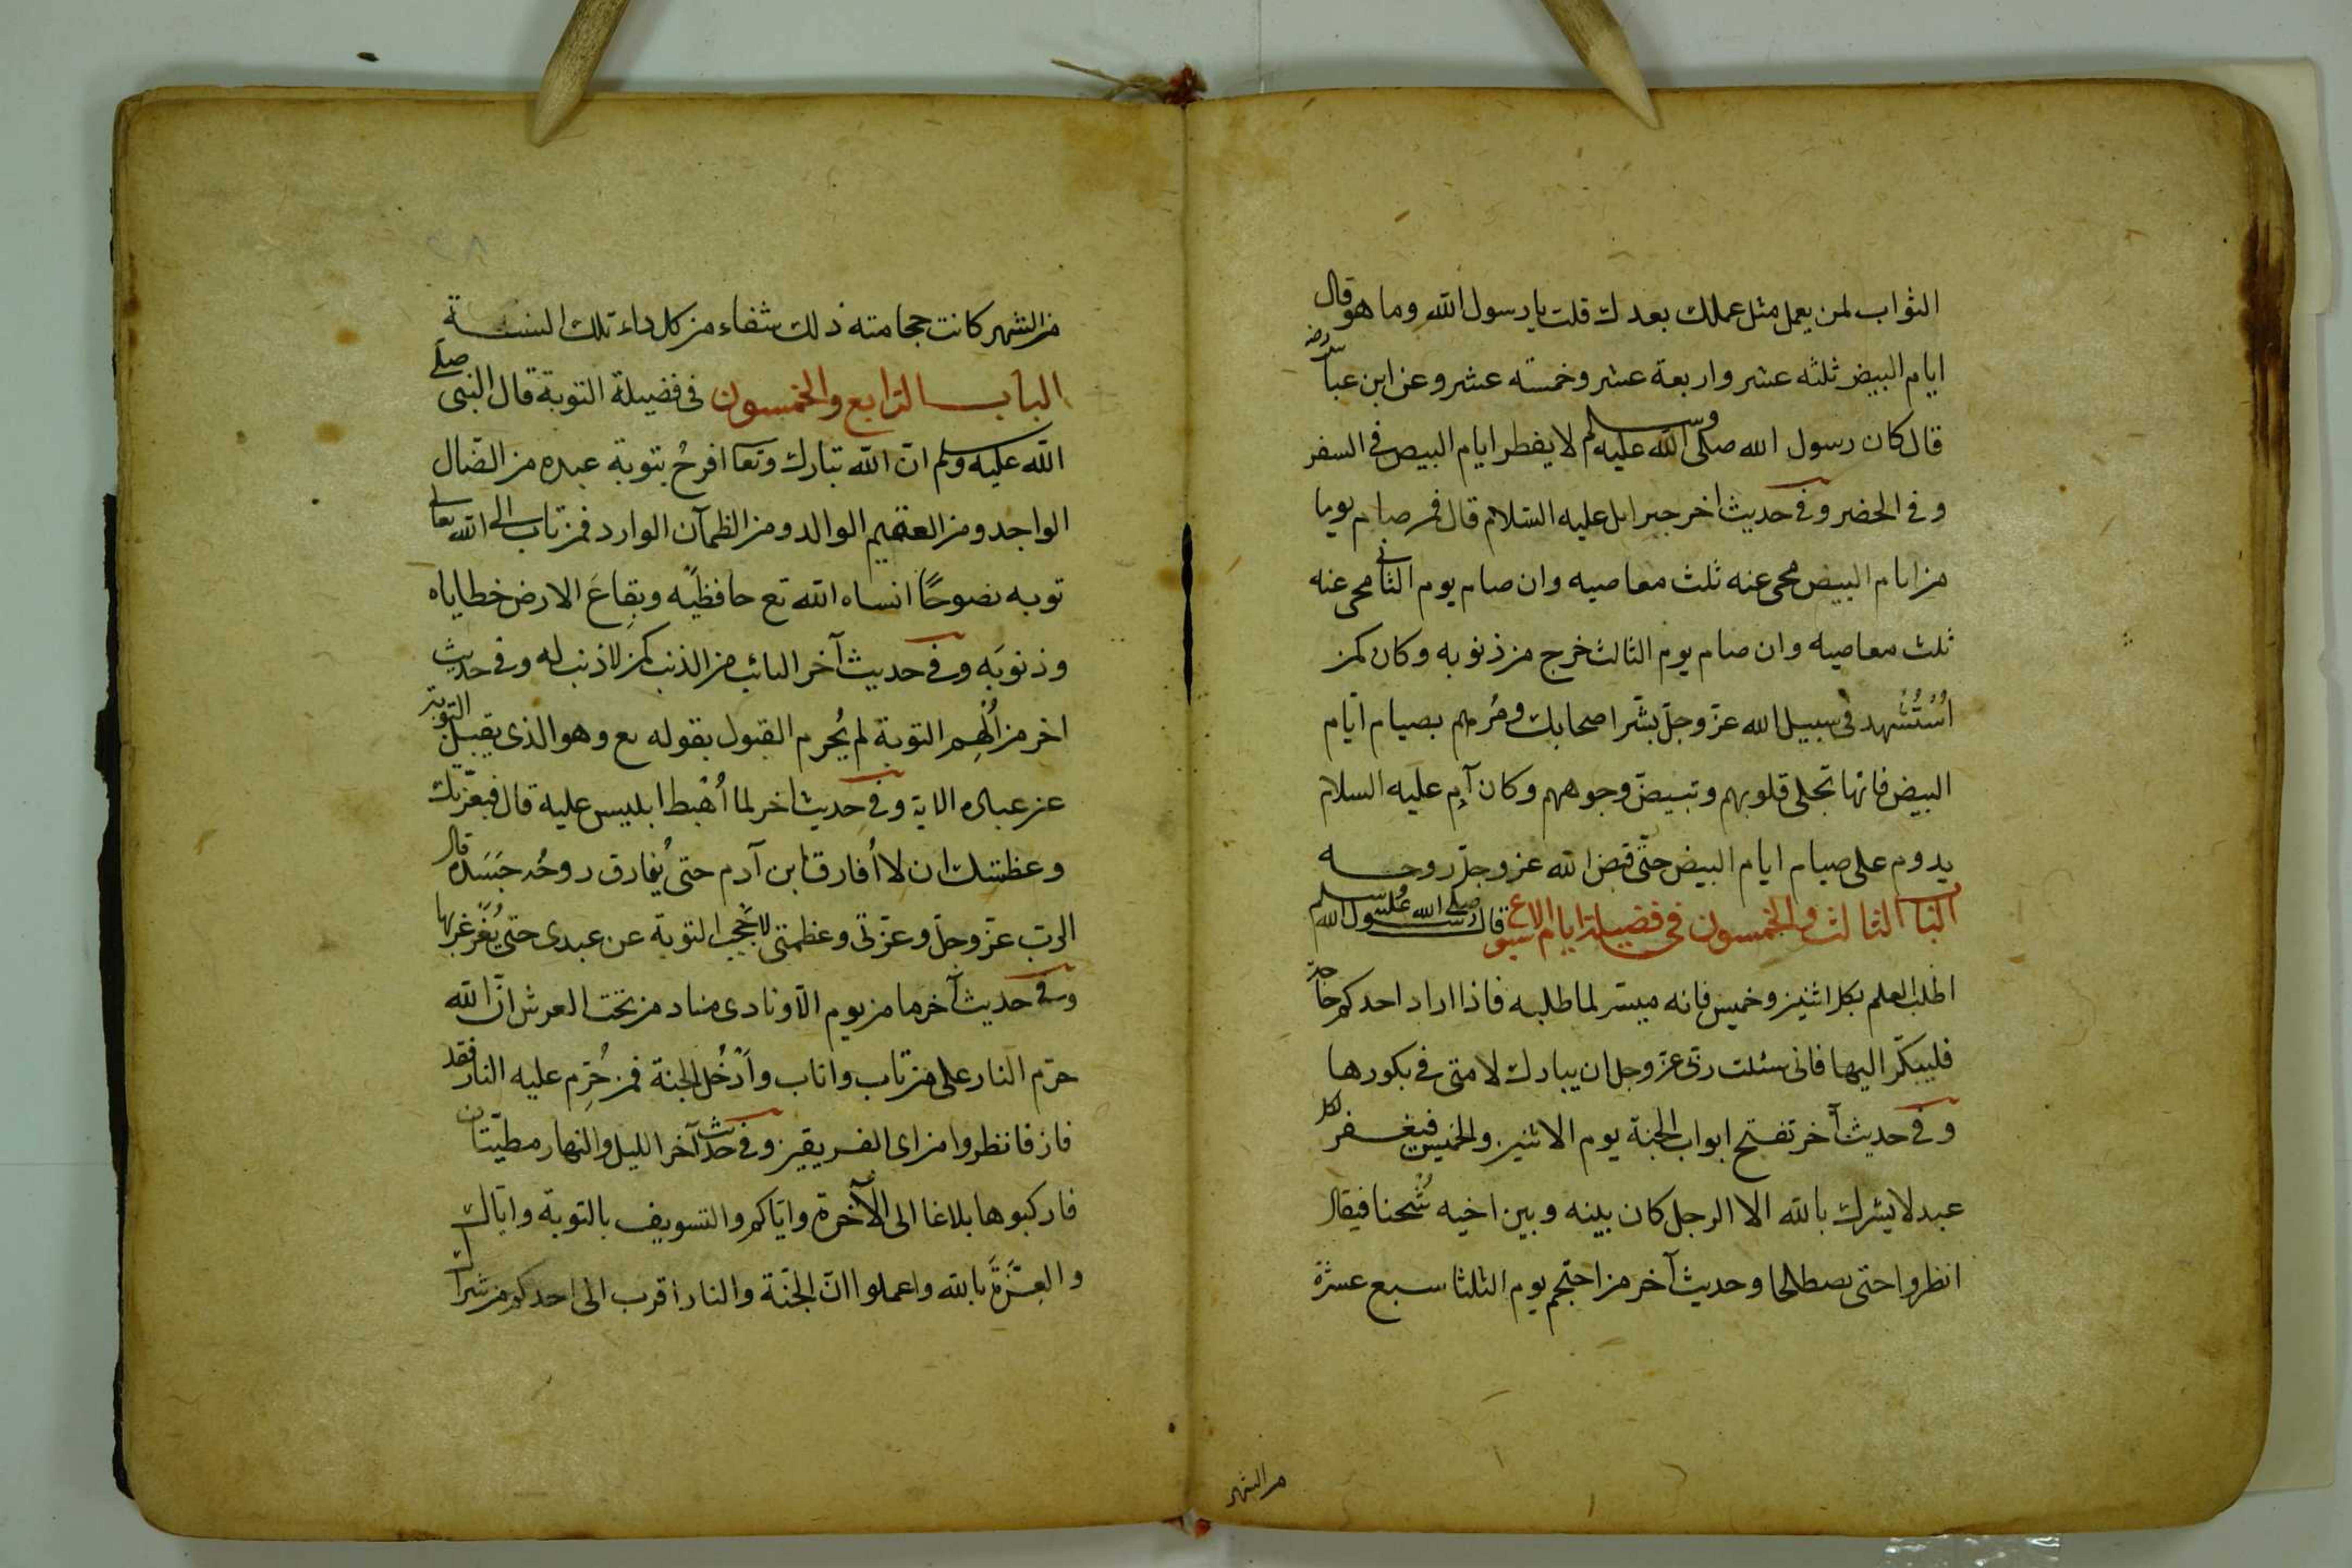 الثواب لمن يعمل مثل عملك بعدك قلت يا رسول الله وما هو قال
ايام البيض ثلثه عشر واربعة عشر وخمسته عشر وعن ابن عباس رضه
قال كان رسول الله صلى الله عليه وسلم لا يفطر ايام البيض في السفر
وفي الحضر وفي حديث اخر جبرايل عليه السلام قال فمن صام يوما
من ايام البيض محى عنه ثلث معاصيه وان صام يوم الثانى محى عنه
ثلث معاصيه وان صام يوم الثالث خرج من ذنوبه وكان كمن
اُسْتُشْهِد في سبيل الله عزّ وجلّ بشّر اصحابك ومُرهم بصيام ايّام
البيض فانها تجلى قلوبهم وتبيضّ وجوههم وكان آدم عليه السلام
يدوم على صيام ايام البيض حتّى قبض الله عز وجلّ روحه
الباب الثالث والخمسون في فضيلة ايام الاسبوع قال رسول الله صلى الله عليه وسلم
اطلب العلم بكل اثنين وخميس فانه ميسّر لما طلبه فاذا اراد احدكم حاجة
فليبكّر اليها فانى سئلت ربّى عزّ وجل ان يبارك لامتى في بكورها
وفي حديث آخر تفتح ابواب الجنة يوم الاثنين والخميس فيغفر لكل
عبد لا يشرك بالله الا الرجل كان بينه وبين اخيه شُحنا فيقال
انظروا حتى يصطلحا وحديث آخر من احتجم يوم الثلثا سبع عشرة
من الشهر
من الشهر كانت حجامته ذلك شفاء من كل داء تلك السنة
الباب الرابع والخمسون فى فضيلة التوبة قال النبى صلى
الله عليه وسلم انّ الله تبارك وتعا افرحُ بتوبة عبده من الضّال
الواجد ومن العقيم الوالد ومن الظمآن الوارد فمن تاب الى الله تعالى
توبه نصوحًا انساه الله تع حافظَيْه وبِقاعَ الارض خطاياه
وذنوبَه وفي حديث آخر التائب من الذنب كمن لا ذنب له وفي حديث
اخر من اُلْهِم التوبة لم يُحرم القبول بقوله تع وهو الذى يقبل التوبة
عن عباده الاية وفي حديث اخر لما اُهْبط ابليس عليه قال فبعزّتك
وعظمتك ان لا اُفارق ابن آدم حتى يُفارق روحُه جَسَدَه قال
الربّ عزّ وجلّ وعزّتى وعظمتى لا اَحجب التوبة عن عبدى حتى يُغَرْغربها
وفي حديث آخر ما من يوم الّا ونادى مناد من تحت العرش انّ الله
حرّم النار على من تاب واناب واَدْخُل الجنة فمن حُرّم عليه النار فقد
فاز فانظروا من اى الفريقين وفي حديث آخر الليل والنهار مطيّتان
فاركبوها بلاغا الى الآخرة وايّاكم والتسويف بالتوبة وايّاك
والعِزَّةَ بالله واعملوا انّ الجنّة والنار اقرب الى احدكم من شراك